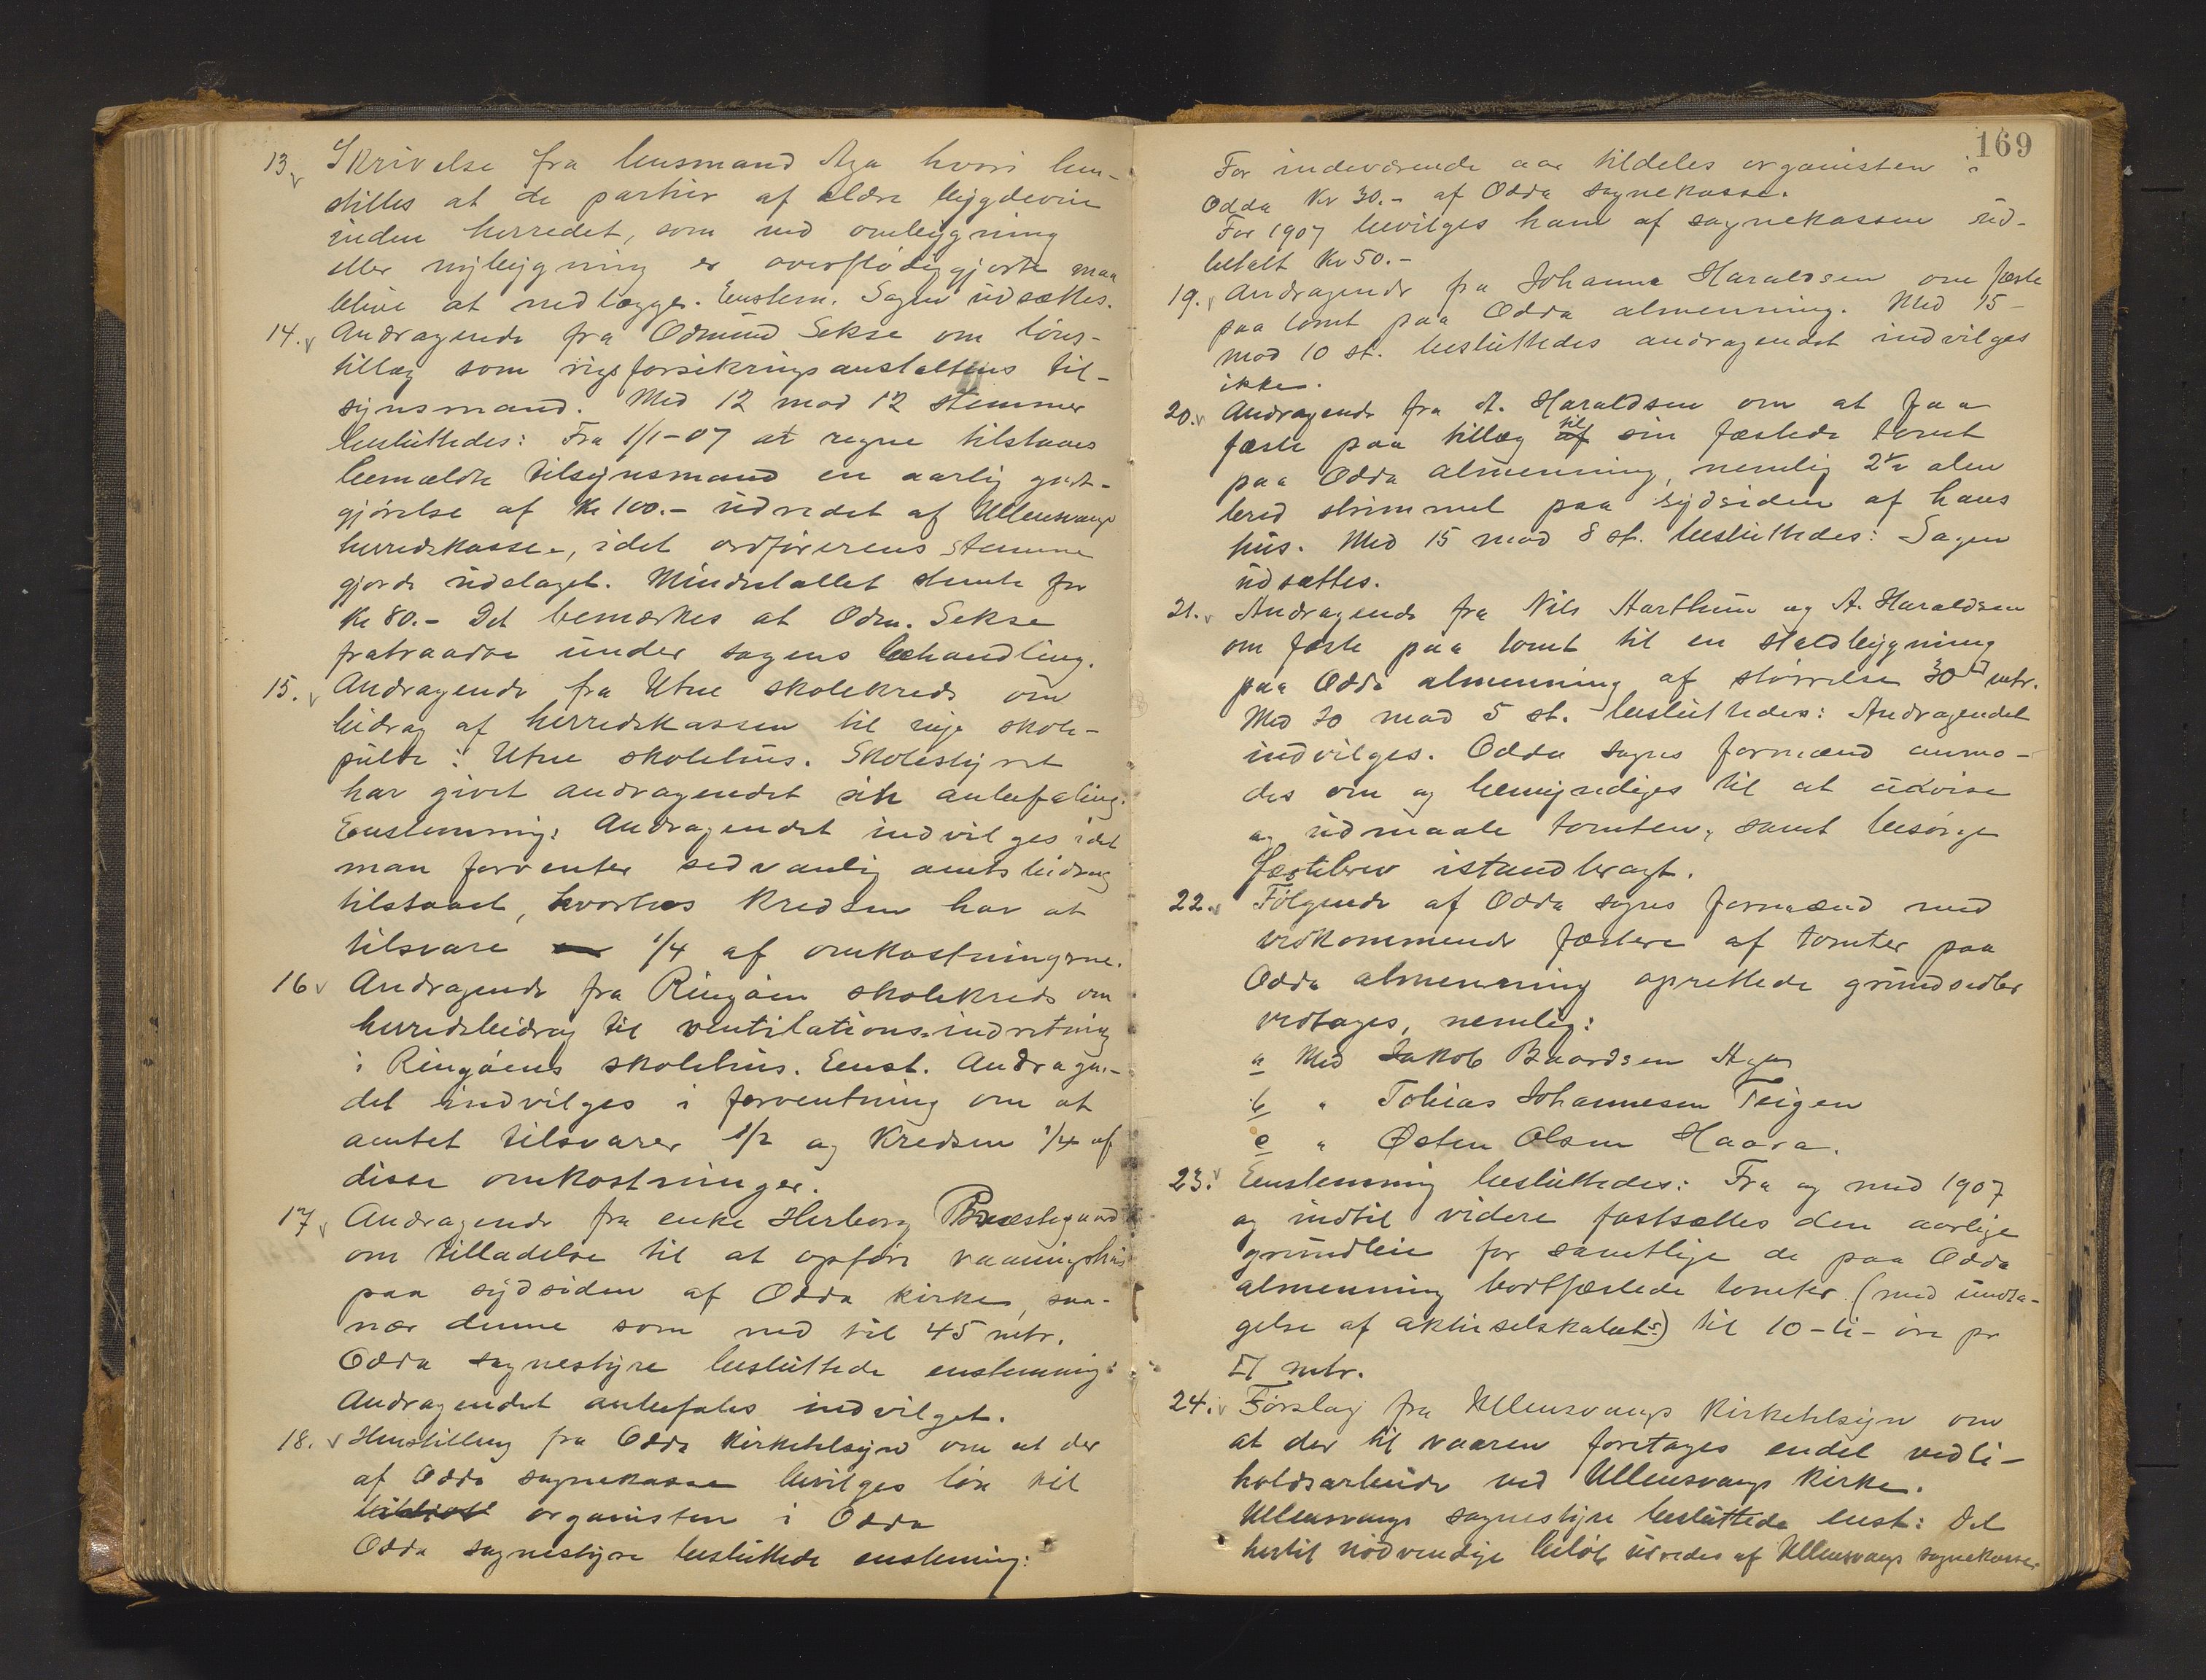 13. Skrivelse fra lensmand Aga hvori hen-
stilles at de partier af ældre bygdevei
inden herredet, som ved omlægning
eller nybygning er overflødiggjorte maa
blive at nedlægge. Enstem. Sagen udsættes.
14. Andragende fra Odmund Sekse om løns-
tillæg som rigsforsikringsanstaltens til-
synsmand. Med 12 mod 12 stemmer
besluttedes: Fra 1/1-07 at regne tilstaaes
bemældte tilsynsmand en aarlig godt-
gjørelse af Kr 100.- udredet af Ullensvangs
herredskasse, idet ordførerens stemme
gjorde udslaget. Mindretallet stemte for
Kr 80.- Det bemærkes at Odm. Sekse
fratraadte under sagens behandling.
15. Andragende fra Utne skolekreds om
bidrag af herredskassen til nye skole-
pulte i Utne skolehus. Skolestyret
har givet andragendet sin anbefaling.
Enstemmig: Andragendet indvilges idet
man forventer sedvanlig amtsbidrag
tilstaaet, hvorhos kredsen har at
tilsvare 1/4 af omkostningerne.
16 Andragende fra Ringøen skolekreds om
herredsbidrag til ventilations-indretning
i Ringøens skolehus. Enst. Andragen-
det indvilges i forventning om at
amtet tilsvarer 1/2 og kredsen 1/4 af
disse omkostninger.
17 Andragende fra enke Herborg Præstegaard
om tilladelse til at opføre vaaningshus
paa sydsiden af Odda kirke, saa-
nær denne som ned til 45 mtr.
Odda sognestyre besluttede enstemmig:
Andragendet anbefales indvilget.
18. Henstilling fra Odda kirketilsyn om at der
af Odda sognekasse bevilges løn til
organisten i Odda
Odda sognestyre besluttede enstemmig:
169
For indeværende aar tildeles organisten i
Odda Kr 30.- af Odda sognekasse.
For 1907 bevilges ham af sognekassen ud-
betalt Kr 50.-
19. Andragende fra Johanne Haraldsen om fæste
paa tomt paa Odda almenning. Med 15
mod 10 st. besluttedes andragendet indvilges
ikke.
20. Andragende fra A. Haraldsen om at faa
fæste paa tillæg af til sin fæstede tomt
paa Odda almenning, nemlig 2 1/2 alen
bred strimmel paa sydsiden af hans
hus. Med 15 mod 8 st. besluttedes: Sagen
udsættes.
21. Andragende fra Nils Aarthun og A. Haraldsen
om fæste paa tomt til en staldbygning
paa Odda almenning af størrelse 30 □ mtr.
Med 20 mod 5 st. besluttedes: Andragendet
indvilges. Odda sogns formænd anmo-
des om og bemyndiges til at udvise
og udmaale tomten, samt besørge
fæstebrev istandbragt.
22. Følgende af Odda sogns formænd med
vedkommende fæstere af tomter paa
Odda almenning oprettede grundsedler
vedtages, nemlig:
a Med Jakob Baardsen Aga
b " Tobias Johannesen Teigen
c " Østen Olsen Haara.
23. Enstemmig besluttedes: Fra og med 1907
og indtil videre fastsættes den aarlige
grundleie for samtlige de paa Odda
almenning bortfæstede tomter (med undta-
gelse af aktieselskabets) til 10-ti-øre pr
□ mtr.
24. Forslag fra Ullensvangs kirketilsyn om
at der til vaaren foretages endel vedli-
holdsarbeide ved Ullensvangs kirke.
Ullensvangs sognestyre besluttede enst: Det
hertil nødvendige beløb udredes af Ullensvangs sognekasse.